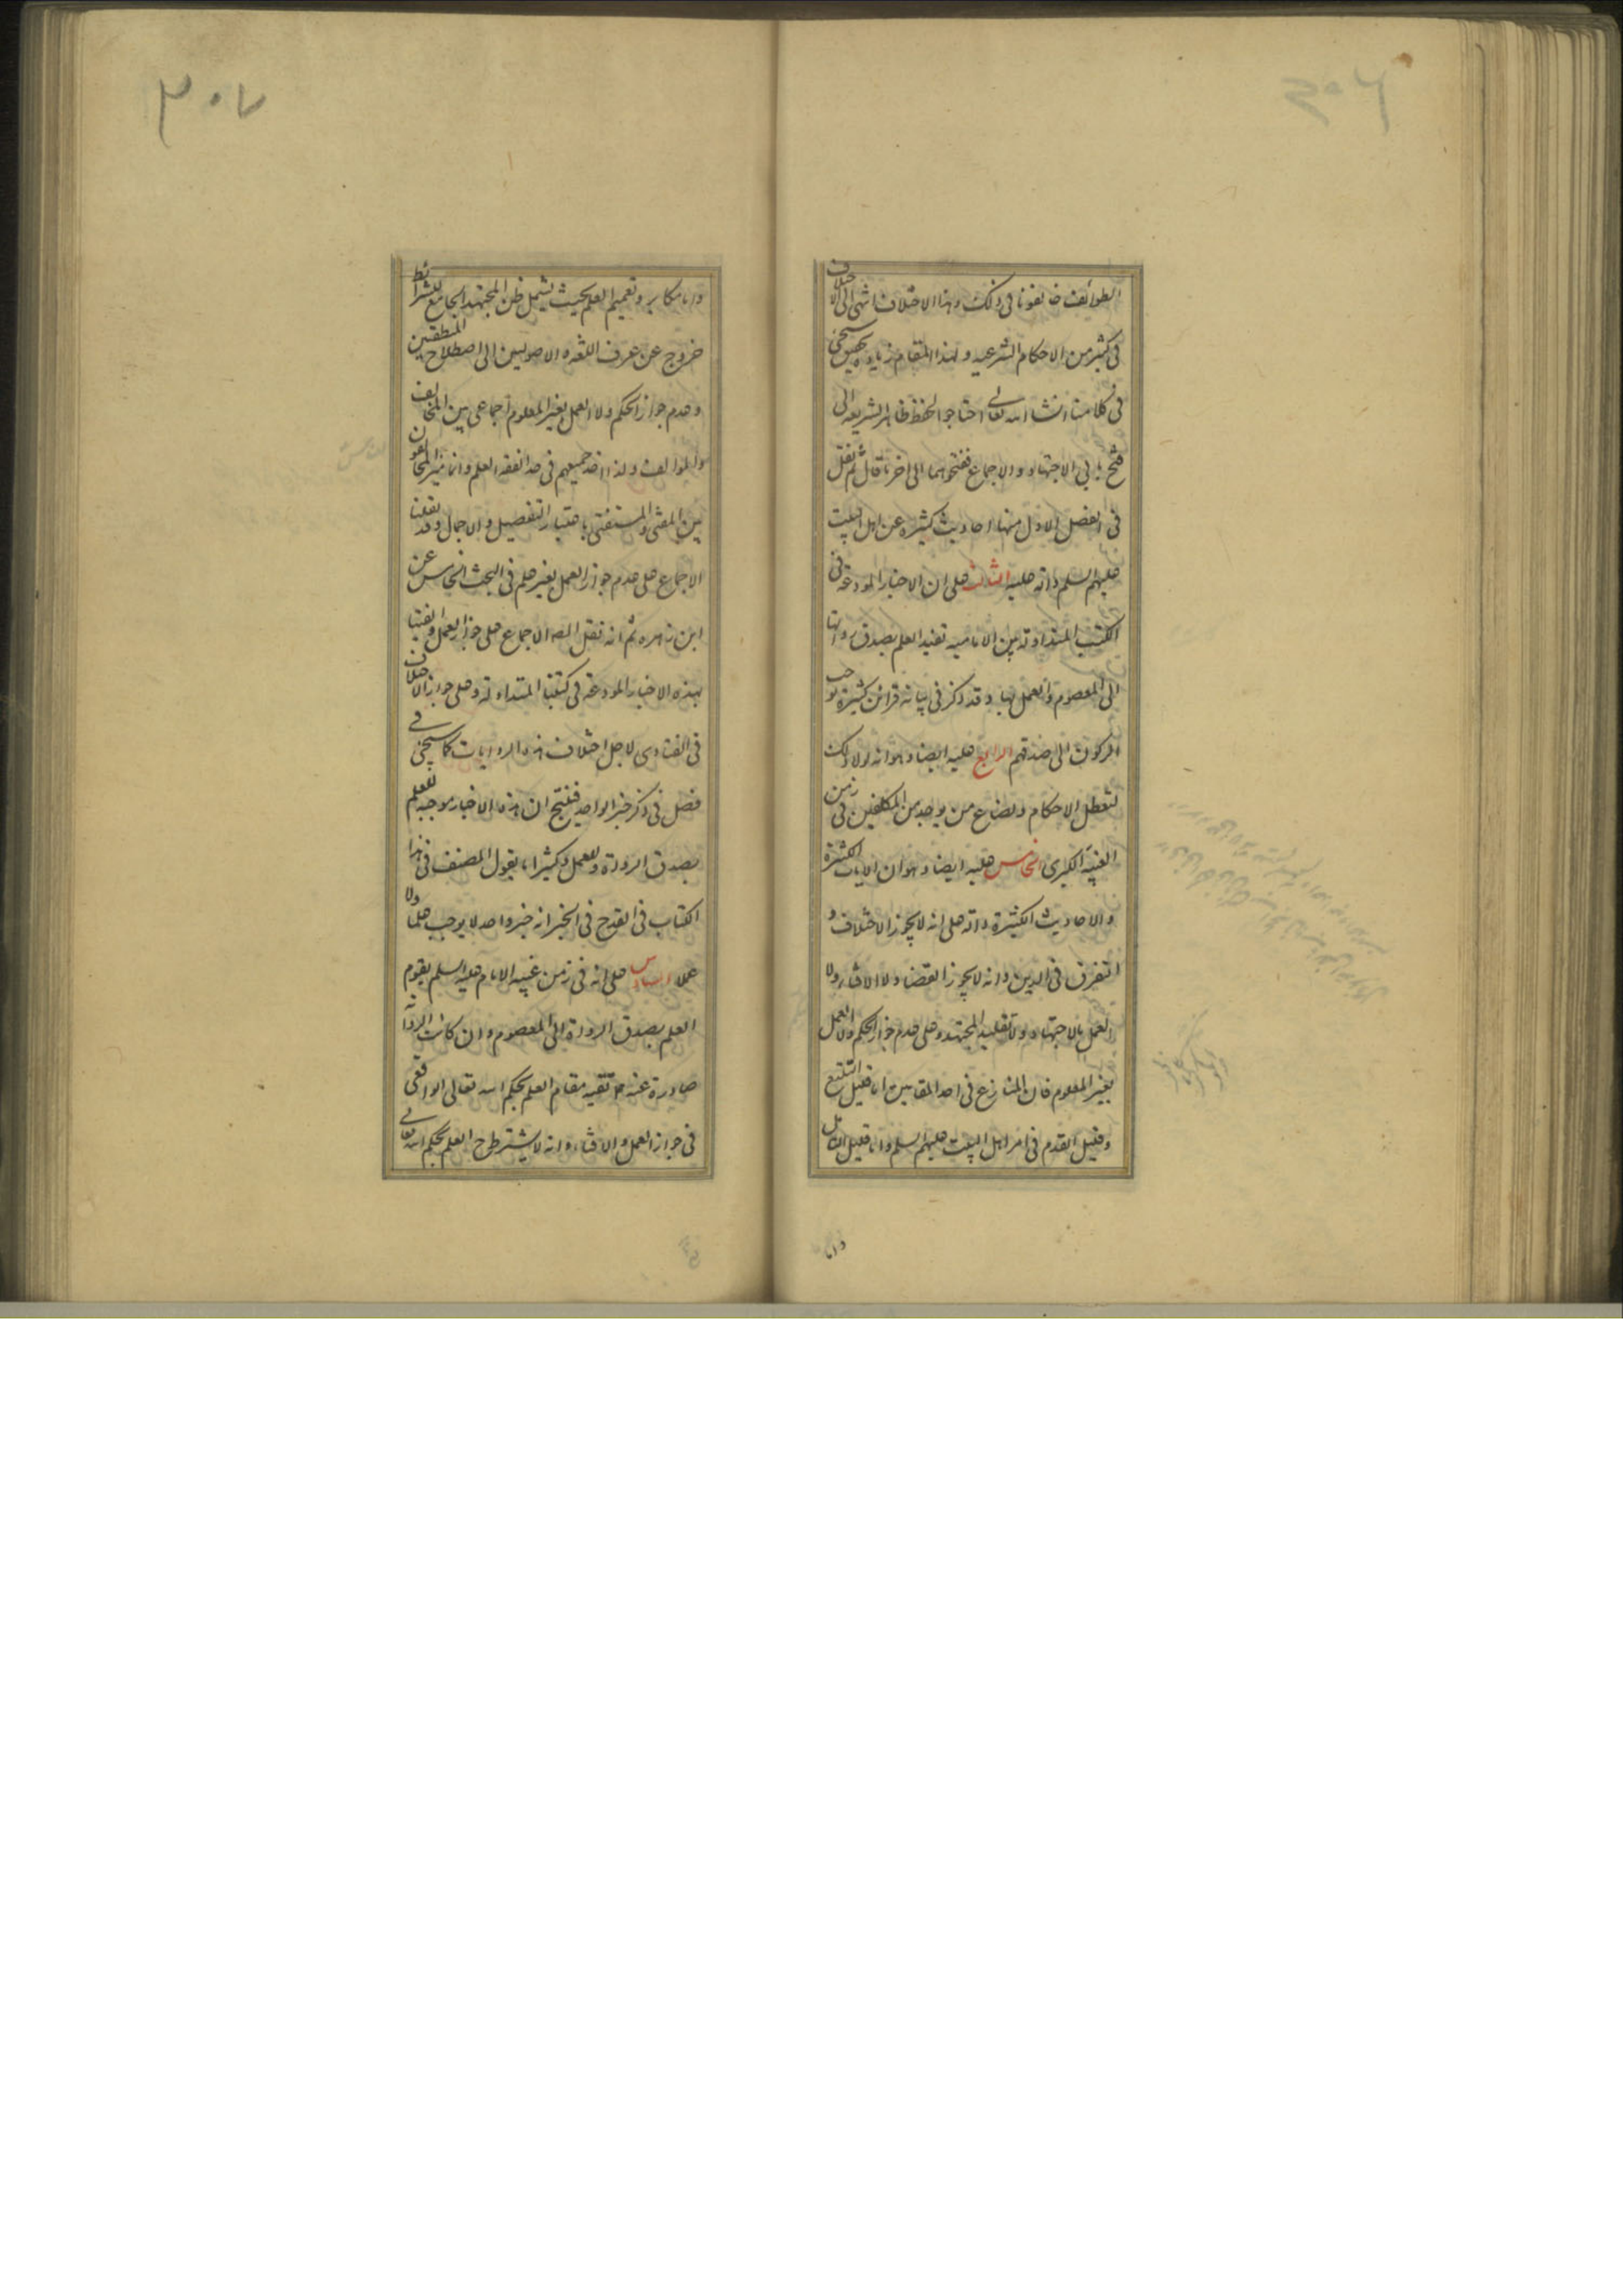 ٣٠٦
الطوائف خالفونا فى ذلك وهذا الاختلاف انتهى الى الاختلاف
فى كثير من الاحكام الشرعيه ولهذا المقام زياده تحقيق سيجئ
فى كلامنا انشا الله تعالى احتاجوا لحفظ ظاهر الشريعه الى
فتح بابى الاجتهاد والاجماع ففتحوهما الى اخر ما قال ثم نقل
فى الفصل الاول منها احاديث كثيره عن اهل البيت
عليهم السلم دالة عليه الثالث على ان الاخبار المودعة فى
الكتب المتداولة بين الاماميه تفيد العلم بصدق رواتها
الى المعصوم والعمل بها وقد ذكر فى بيانه قرائن كثيرة توجب
الركون الى صدقهم الرابع عليه ايضا وهو انه لولا ذلك
لتعطل الاحكام ولضاع من يوجد من المكلفين فى زمن
الغيبة الكبرى الخامس عليه ايضا وهو ان الايات الكثيرة
والاحاديث الكثيرة دالة على انه لا يجوز الاختلاف و
التفرق فى الدين وانه لا يجوز القضا ولا الافتاء ولا
العمل بالاجتهاد ولا تقليد المجتهد وعلى عدم جواز الحكم ولا العمل
بغير المعلوم فان المنازع فى احد المقامين اما قليل التتبع
وقليل القدم فى امر اهل البيت عليهم السلم واما قليل التامل
واما
٣٠٧
واما مكابر وتعميم العلم بحيث يشمل ظن المجتهد الجامع للشرائط
خروج عن عرف اللغه والاصوليين الى اصطلاح المنطقيين
وعدم جواز الحكم ولا العمل بغير المعلوم اجماعى بين المخالف
والموالف ولذا اخذ جميعهم فى حد الفقه العلم وانما ميز المخالفون
بين المفتى والمستفتى باعتبار التفصيل والاجمال وقد نقلنا
الاجماع على عدم جواز العمل بغير علم فى البحث الخامس عن
ابن زهره ثم انه نقل المصه الاجماع على جواز العمل والفتيا
بهذه الاخبار المودعة فى كتبنا المتداولة وعلى جواز الاختلاف
فى الفتاوى لاجل اختلاف هذه الروايات كما سيجئ فى
فصل فى ذكر خبر الواحد فنتج ان هذه الاخبار موجبه للعلم
بصدق الرواة وللعمل وكثيرا ما يقول المصنف فى هذا
الكتاب فى القدح فى الخبر انه خبر واحد لا يوجب علما ولا
عملا السادس على انه فى زمن غيبه الامام عليه السلم يقوم
العلم بصدق الرواة الى المعصوم وان كانت الرواية
صادرة عنه تقيه مقام العلم بحكم الله تعالى الواقعى
فى جواز العمل والافتاء وانه لا يشترط ح العلم بحكم الله تعالى